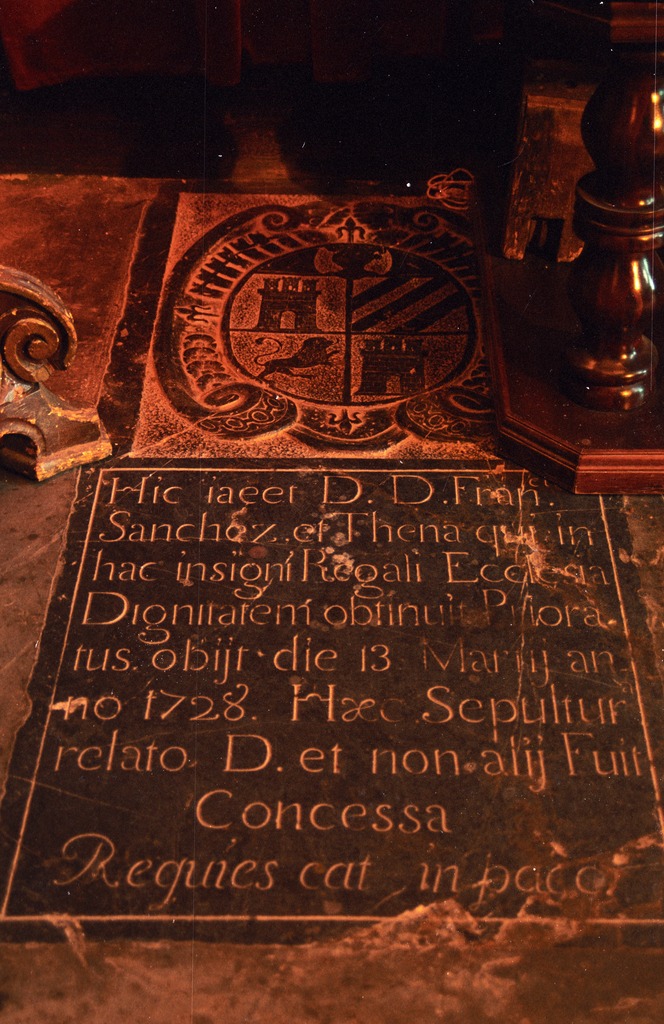 Hic iacet D. D. Fran.
Sanchez et Thena qui in
hac insigni Regali Ecclesia
Dignitatem obtinuit Priora
tus. obijt die 13 Martij an
no 1728. Hæc Sepultur
relato D. et non alij Fuit
Concessa
Requies cat in pace